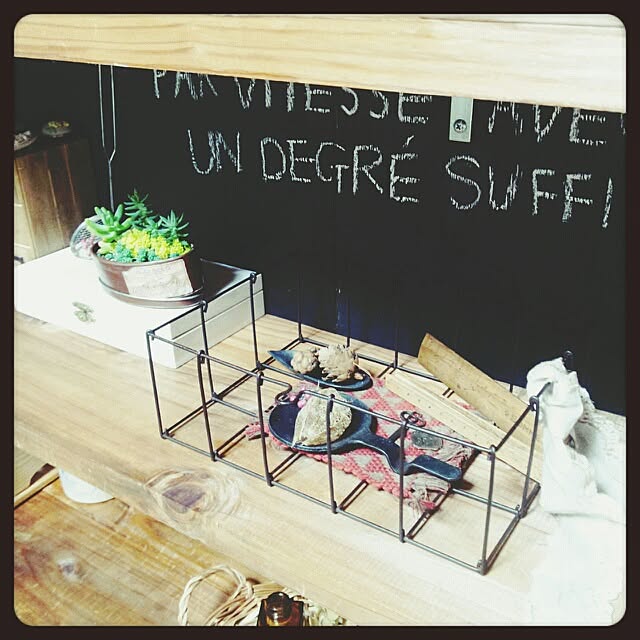 PAR VITESSE AVE
UN DEGRÉ SUFFI